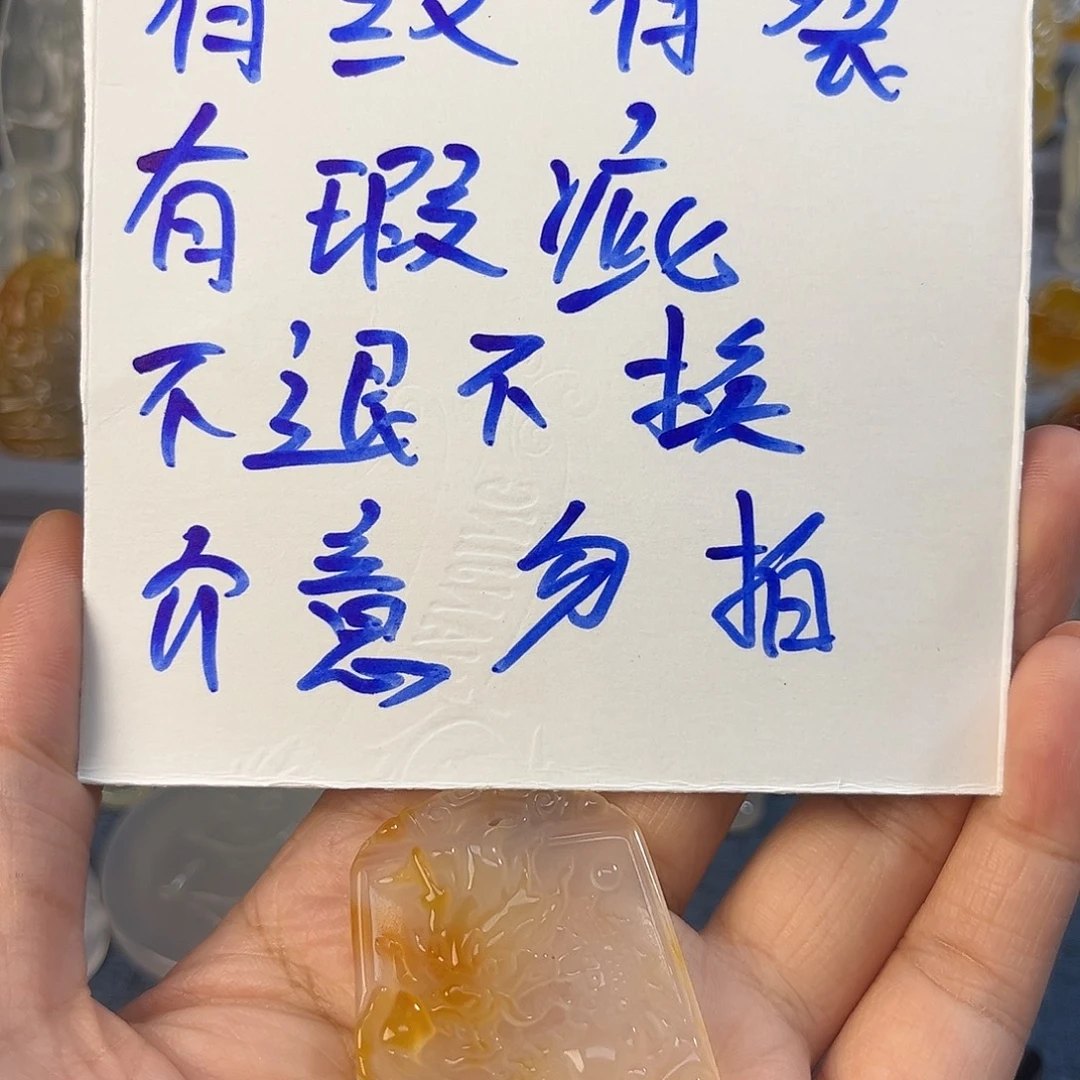 有纹有裂
有瑕疵
不退不换
介意勿拍